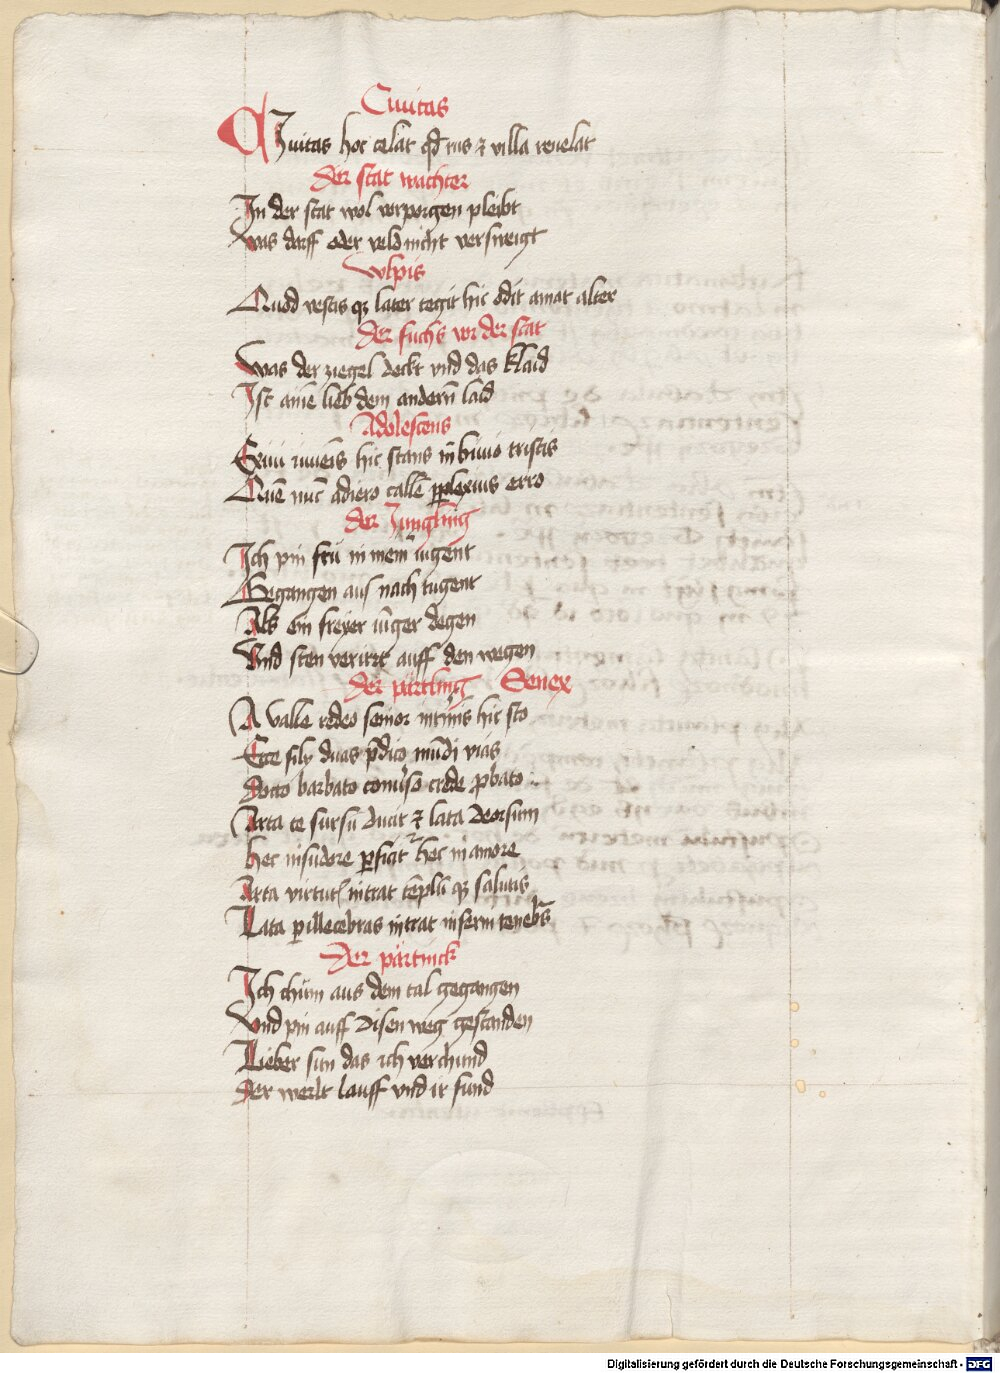 Ciuitas
Ciuitas hoc celat qd rus et villa reuelat
Der stat wachter
In der stat wol verporgen pleibt
Was dorff oder veld nicht versweigt
wlpis
Quod vestis que later tegit hic odit amat alter
Der fuchs vor der stat
Was der ziegel deckt vnd das klaid
Ist aine lieb dem andern laid
Adolescens
Exiui iuuenis hic stans in biuio tristis
Que nunc adiero calle perplexius erro
Der Jungling
Ich pin fru in meinr iugent
Gegangen aus nach tugent
Als ein freyer iunger degen
Vnd sten verirrt auff den wegen
Der partling Senex
A valle redeo senior in trinis hic sto
Ecce fili duas predico mundi vias
Docto barbato conuerso crede probato
Arta te sursu ducit et lata deorsum
hec in sudore perficitur hec in amore
Arta virtutes intrat templu que salutis
Lata per illecebras intrat inferni tenebras
Der partinck
Ich chum aus dem tal gegangen
Vnd pin auff disen weg gestanden
Lieber sun das ich verchund
Der werlt lauff vnd ir fund
Digitalisierung gefördert durch die Deutsche Forschungsgemeinschaft - DFG